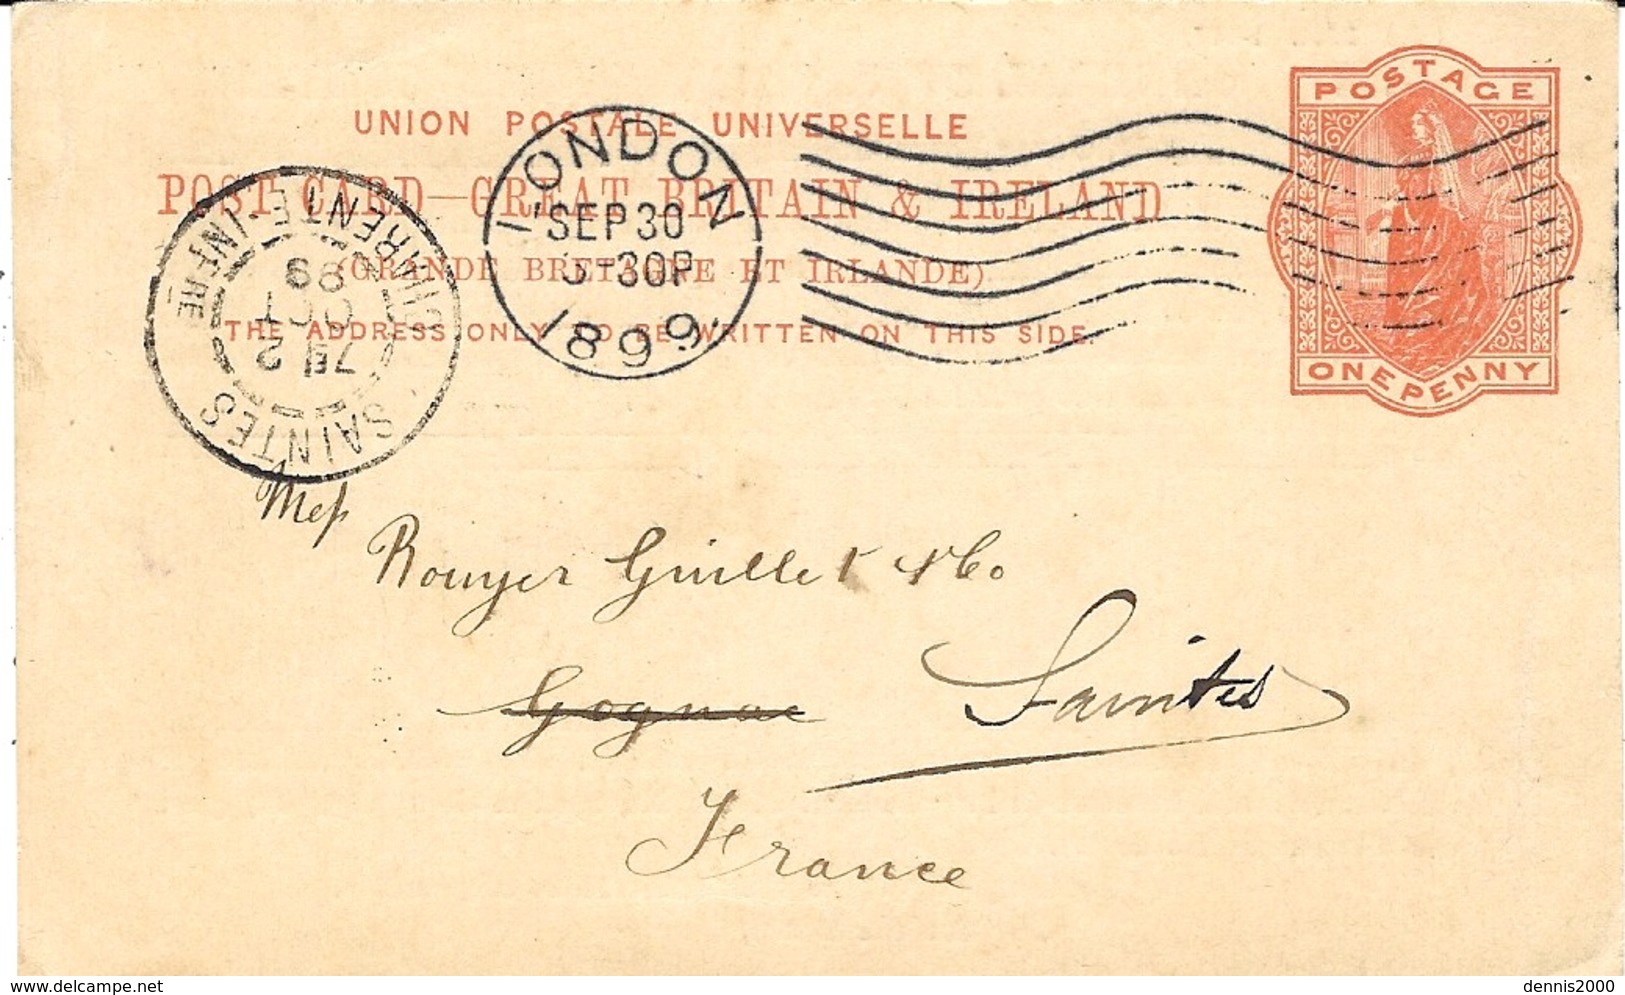 POSTAGE
UNION POSTALE UNIVERSELLE
POST CARD—GREAT BRITAIN & IRELAND
(GRANDE BRETAGNE ET IRLANDE)
THE ADDRESS ONLY TO BE WRITTEN ON THIS SIDE.
ONE PENNY
LONDON
SEP 30
30P
1899
SAINTES
CHARENTE-INFRE
2
OCT
99
Rouyer Guillet & Co
Cognac Saintes
France
delcampe.net
dennis2000